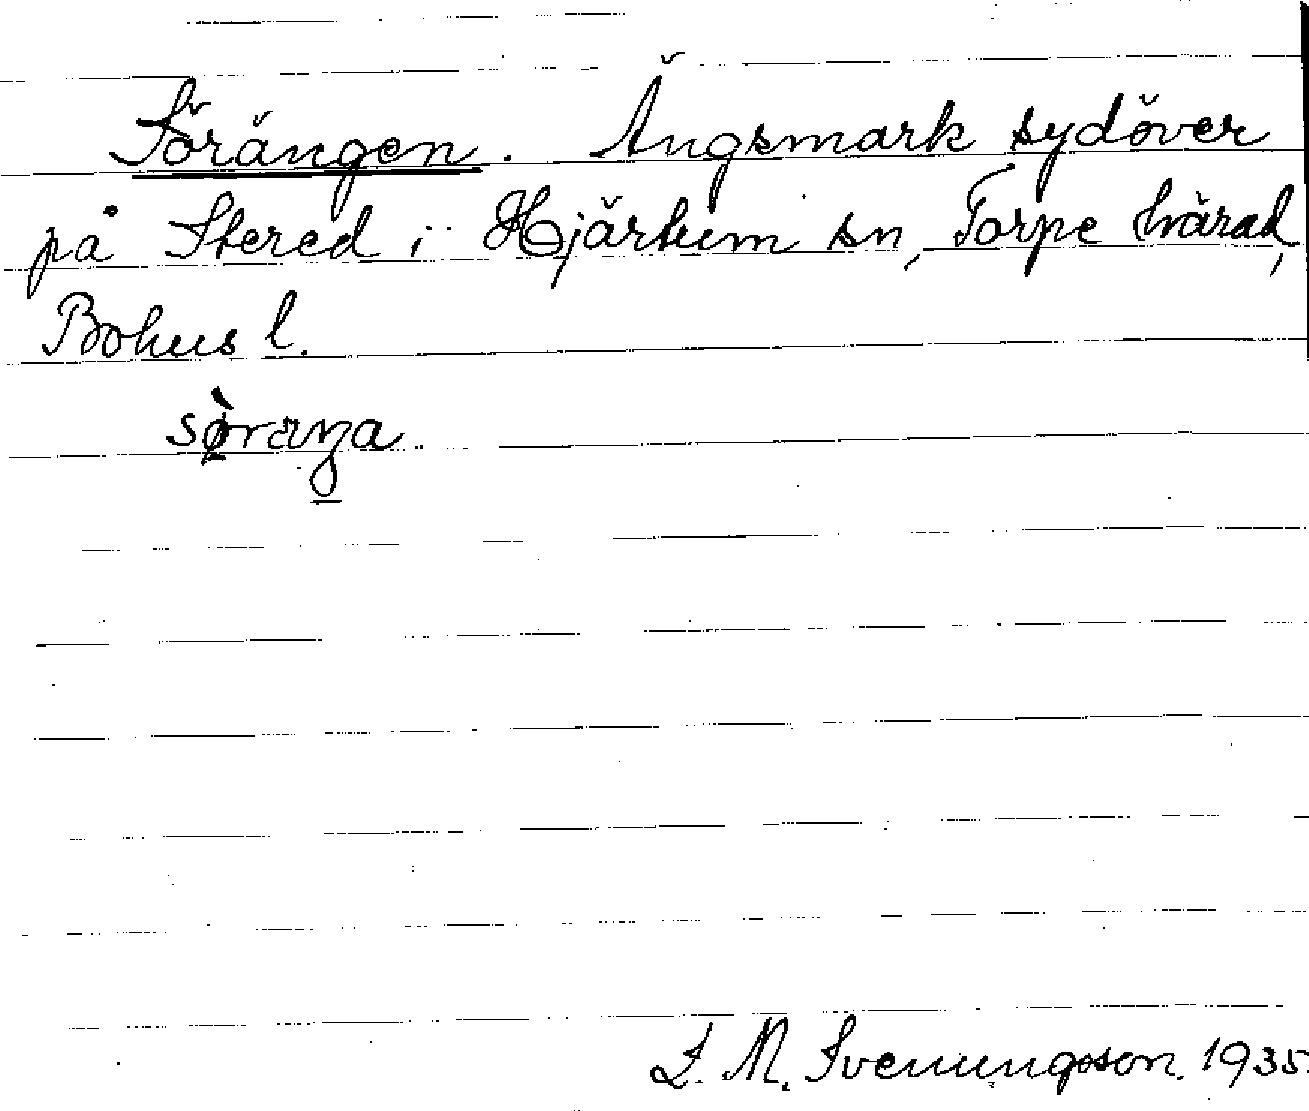 Sörängen. Ängsmark sydöver
på Stered i Hjärtum sn, Torpe härad,
Bohus l.
sø̀räŋa
L. M. Svenungsson 1935.